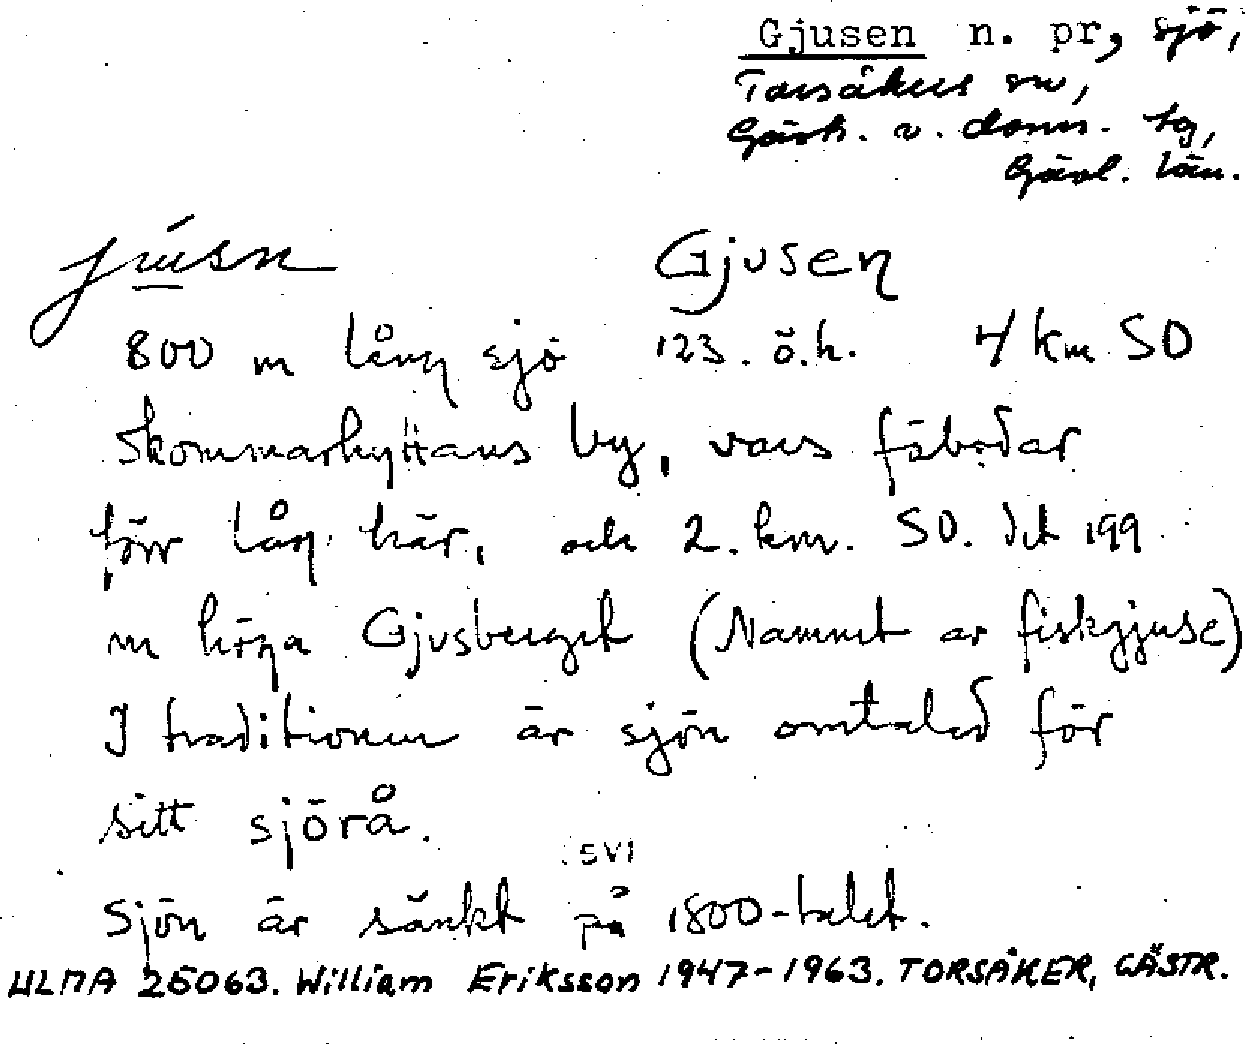 Gjusen n. pr, sjö,
Torsåkers sn,
Gästr. v. doms. tg,
Gävl. län.
júusn Gjusen
800 m lång sjö 123. ö.h. 4 km SO
Skommarhyttans by, vars fäbodar
förr låg här, och 2. km. SO. det 199
m höga Gjusberget (Namnet av fiskgjuse)
I traditionen är sjön omtalad för
sitt sjörå.
SVI
Sjön är sänkt på 1800-talet.
ULMA 25063. William Eriksson 1947-1963. TORSÅKER, GÄSTR.